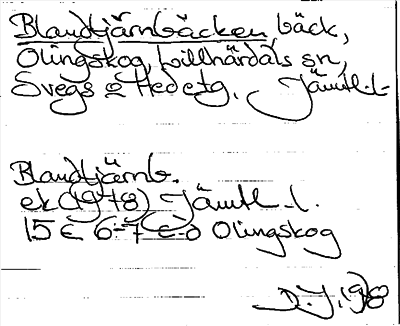 Blandtjärnbäcken, bäck,
Olingskog, Lillhärdals sn,
Svegs o Hede tg. Jämtl.l.
Blandtjärnb.
ek (1978) Jämtl.l.
15 E 6-7 c-d Olingskog
D.J. 1978